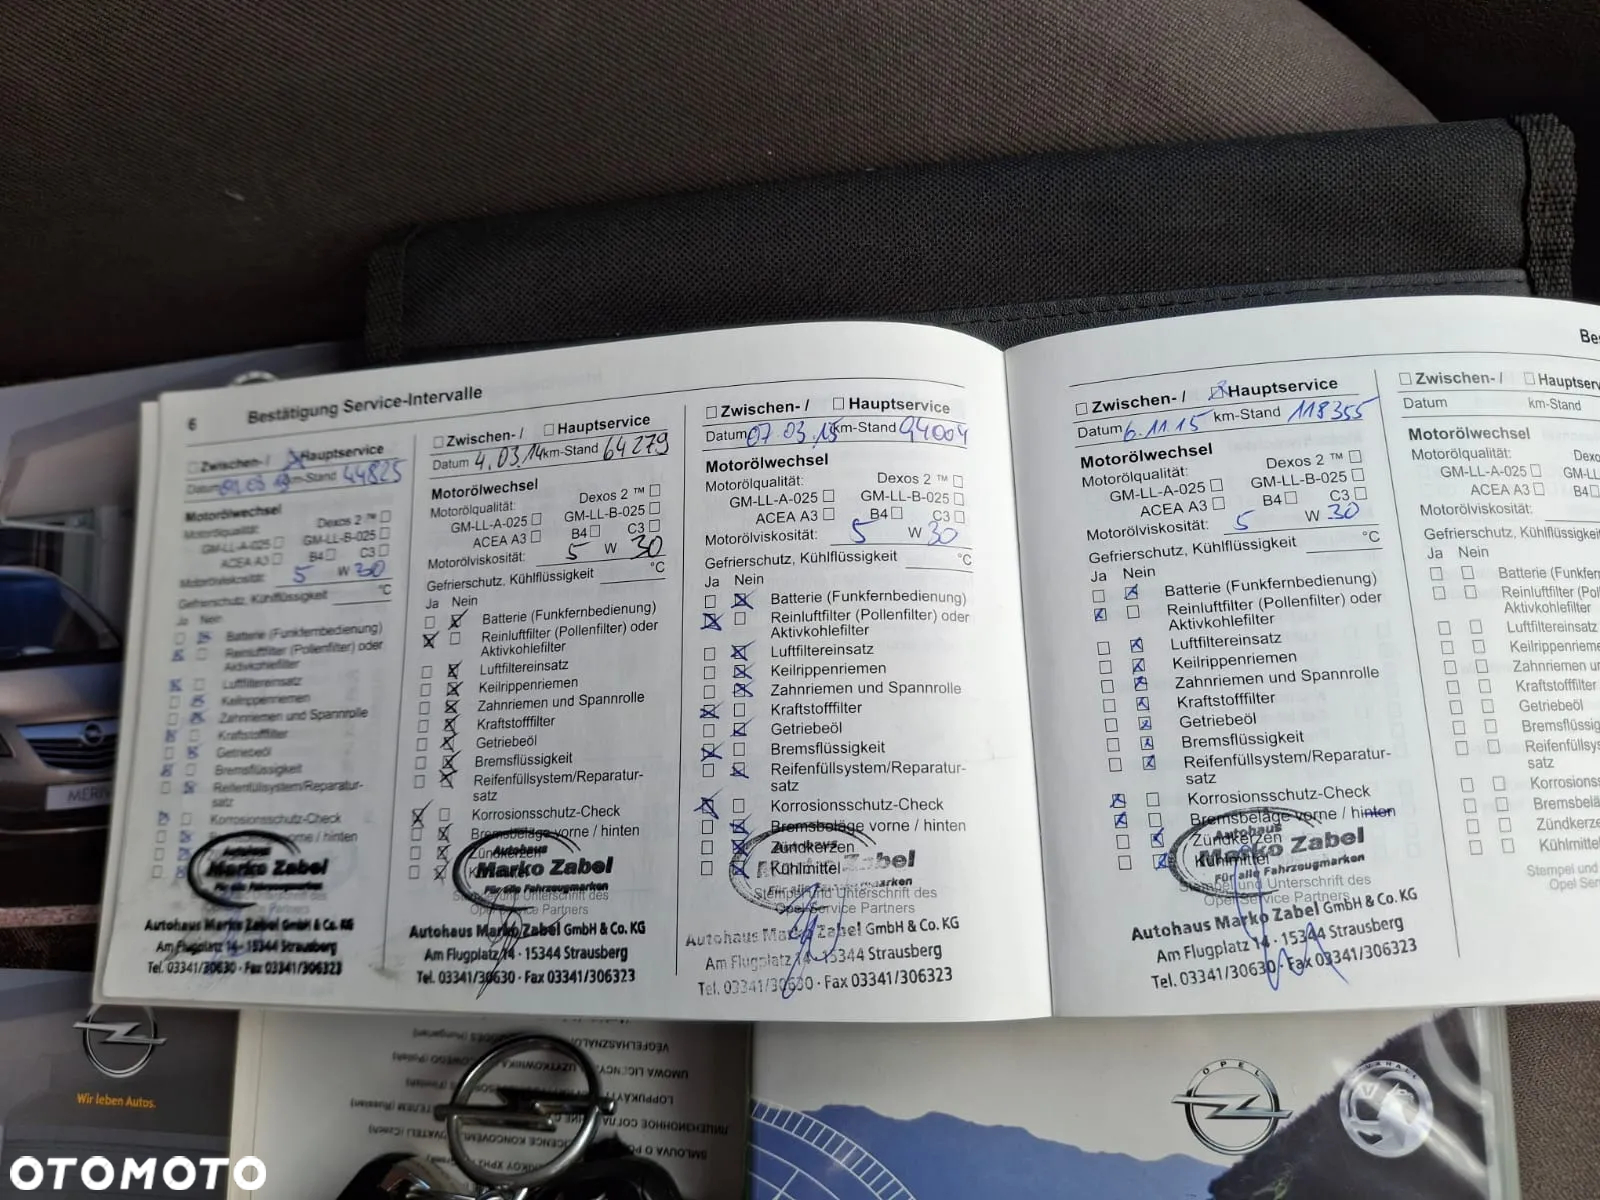 6 Bestätigung Service-Intervalle
Zwischen- / Hauptservice
km-Stand 44825
Motorölwechsel
Motorölqualität:
Dexos 2 ™
GM-LL-A-025 GM-LL-B-025
ACEA A3 B4 C3
Motorölviskosität: 5 W 30
Gefrierschutz, Kühlflüssigkeit °C
Ja Nein
Batterie (Funkfernbedienung)
Reinluftfilter (Pollenfilter) oder
Aktivkohlefilter
Luftfiltereinsatz
Keilrippenriemen
Zahnriemen und Spannrolle
Kraftstofffilter
Getriebeöl
Bremsflüssigkeit
Reifenfüllsystem/Reparatur-
satz
Korrosionsschutz-Check
vorne / hinten
Autohaus
Marko Zabel
Für alle Fahrzeugmarken
Autohaus Marko Zabel GmbH & Co. KG
Am Flugplatz 14 · 15344 Strausberg
Tel. 03341/30630 · Fax 03341/306323
Zwischen- / Hauptservice
Datum 4.03.14 km-Stand 64279
Motorölwechsel
Motorölqualität:
Dexos 2 ™
GM-LL-A-025 GM-LL-B-025
ACEA A3 B4 C3
Motorölviskosität: 5 W 30
Gefrierschutz, Kühlflüssigkeit °C
Ja Nein
Batterie (Funkfernbedienung)
Reinluftfilter (Pollenfilter) oder
Aktivkohlefilter
Luftfiltereinsatz
Keilrippenriemen
Zahnriemen und Spannrolle
Kraftstofffilter
Getriebeöl
Bremsflüssigkeit
Reifenfüllsystem/Reparatur-
satz
Korrosionsschutz-Check
Bremsbeläge vorne / hinten
Zündkerzen
Autohaus
Marko Zabel
Für alle Fahrzeugmarken
Stempel und Unterschrift des
Opel Service Partners
Autohaus Marko Zabel GmbH & Co. KG
Am Flugplatz 14 · 15344 Strausberg
Tel. 03341/30630 · Fax 03341/306323
Zwischen- / Hauptservice
Datum 07.03.15 km-Stand 94004
Motorölwechsel
Motorölqualität:
Dexos 2 ™
GM-LL-A-025 GM-LL-B-025
ACEA A3 B4 C3
Motorölviskosität: 5 W 30
Gefrierschutz, Kühlflüssigkeit °C
Ja Nein
Batterie (Funkfernbedienung)
Reinluftfilter (Pollenfilter) oder
Aktivkohlefilter
Luftfiltereinsatz
Keilrippenriemen
Zahnriemen und Spannrolle
Kraftstofffilter
Getriebeöl
Bremsflüssigkeit
Reifenfüllsystem/Reparatur-
satz
Korrosionsschutz-Check
Bremsbeläge vorne / hinten
Zündkerzen
Kühlmittel
Marko Zabel
Stempel und Unterschrift des
Opel Service Partners
Autohaus Marko Zabel GmbH & Co. KG
Am Flugplatz 14 · 15344 Strausberg
Tel. 03341/30630 · Fax 03341/306323
Zwischen- / Hauptservice
Datum 6.11.15 km-Stand 118355
Motorölwechsel
Motorölqualität:
Dexos 2 ™
GM-LL-A-025 GM-LL-B-025
ACEA A3 B4 C3
Motorölviskosität: 5 W 30
Gefrierschutz, Kühlflüssigkeit °C
Ja Nein
Batterie (Funkfernbedienung)
Reinluftfilter (Pollenfilter) oder
Aktivkohlefilter
Luftfiltereinsatz
Keilrippenriemen
Zahnriemen und Spannrolle
Kraftstofffilter
Getriebeöl
Bremsflüssigkeit
Reifenfüllsystem/Reparatur-
satz
Korrosionsschutz-Check
Bremsbeläge vorne / hinten
Zündkerzen
Kühlmittel
Autohaus
Marko Zabel
Für alle Fahrzeugmarken
Stempel und Unterschrift des
Opel Service Partners
Autohaus Marko Zabel GmbH & Co. KG
Am Flugplatz 14 · 15344 Strausberg
Tel. 03341/30630 · Fax 03341/306323
Bes
Zwischen- / Hauptserv
Datum km-Stand
Motorölwechsel
Motorölqualität: Dexo
GM-LL-A-025 GM-LL-
ACEA A3 B4
Motorölviskosität:
Gefrierschutz, Kühlflüssigkeit
Ja Nein
Batterie (Funkfern
Reinluftfilter (Pollen
Aktivkohlefilter
Luftfiltereinsatz
Keilrippenrieme
Zahnriemen un
Kraftstofffilter
Getriebeöl
Bremsflüssig
Reifenfüllsys
satz
Korrosionssch
Bremsbelä
Zündkerze
Kühlmittel
Stempel und
Opel Ser
MERIV
Wir leben Autos.
OPEL
VAUXHALL
OTOMOTO